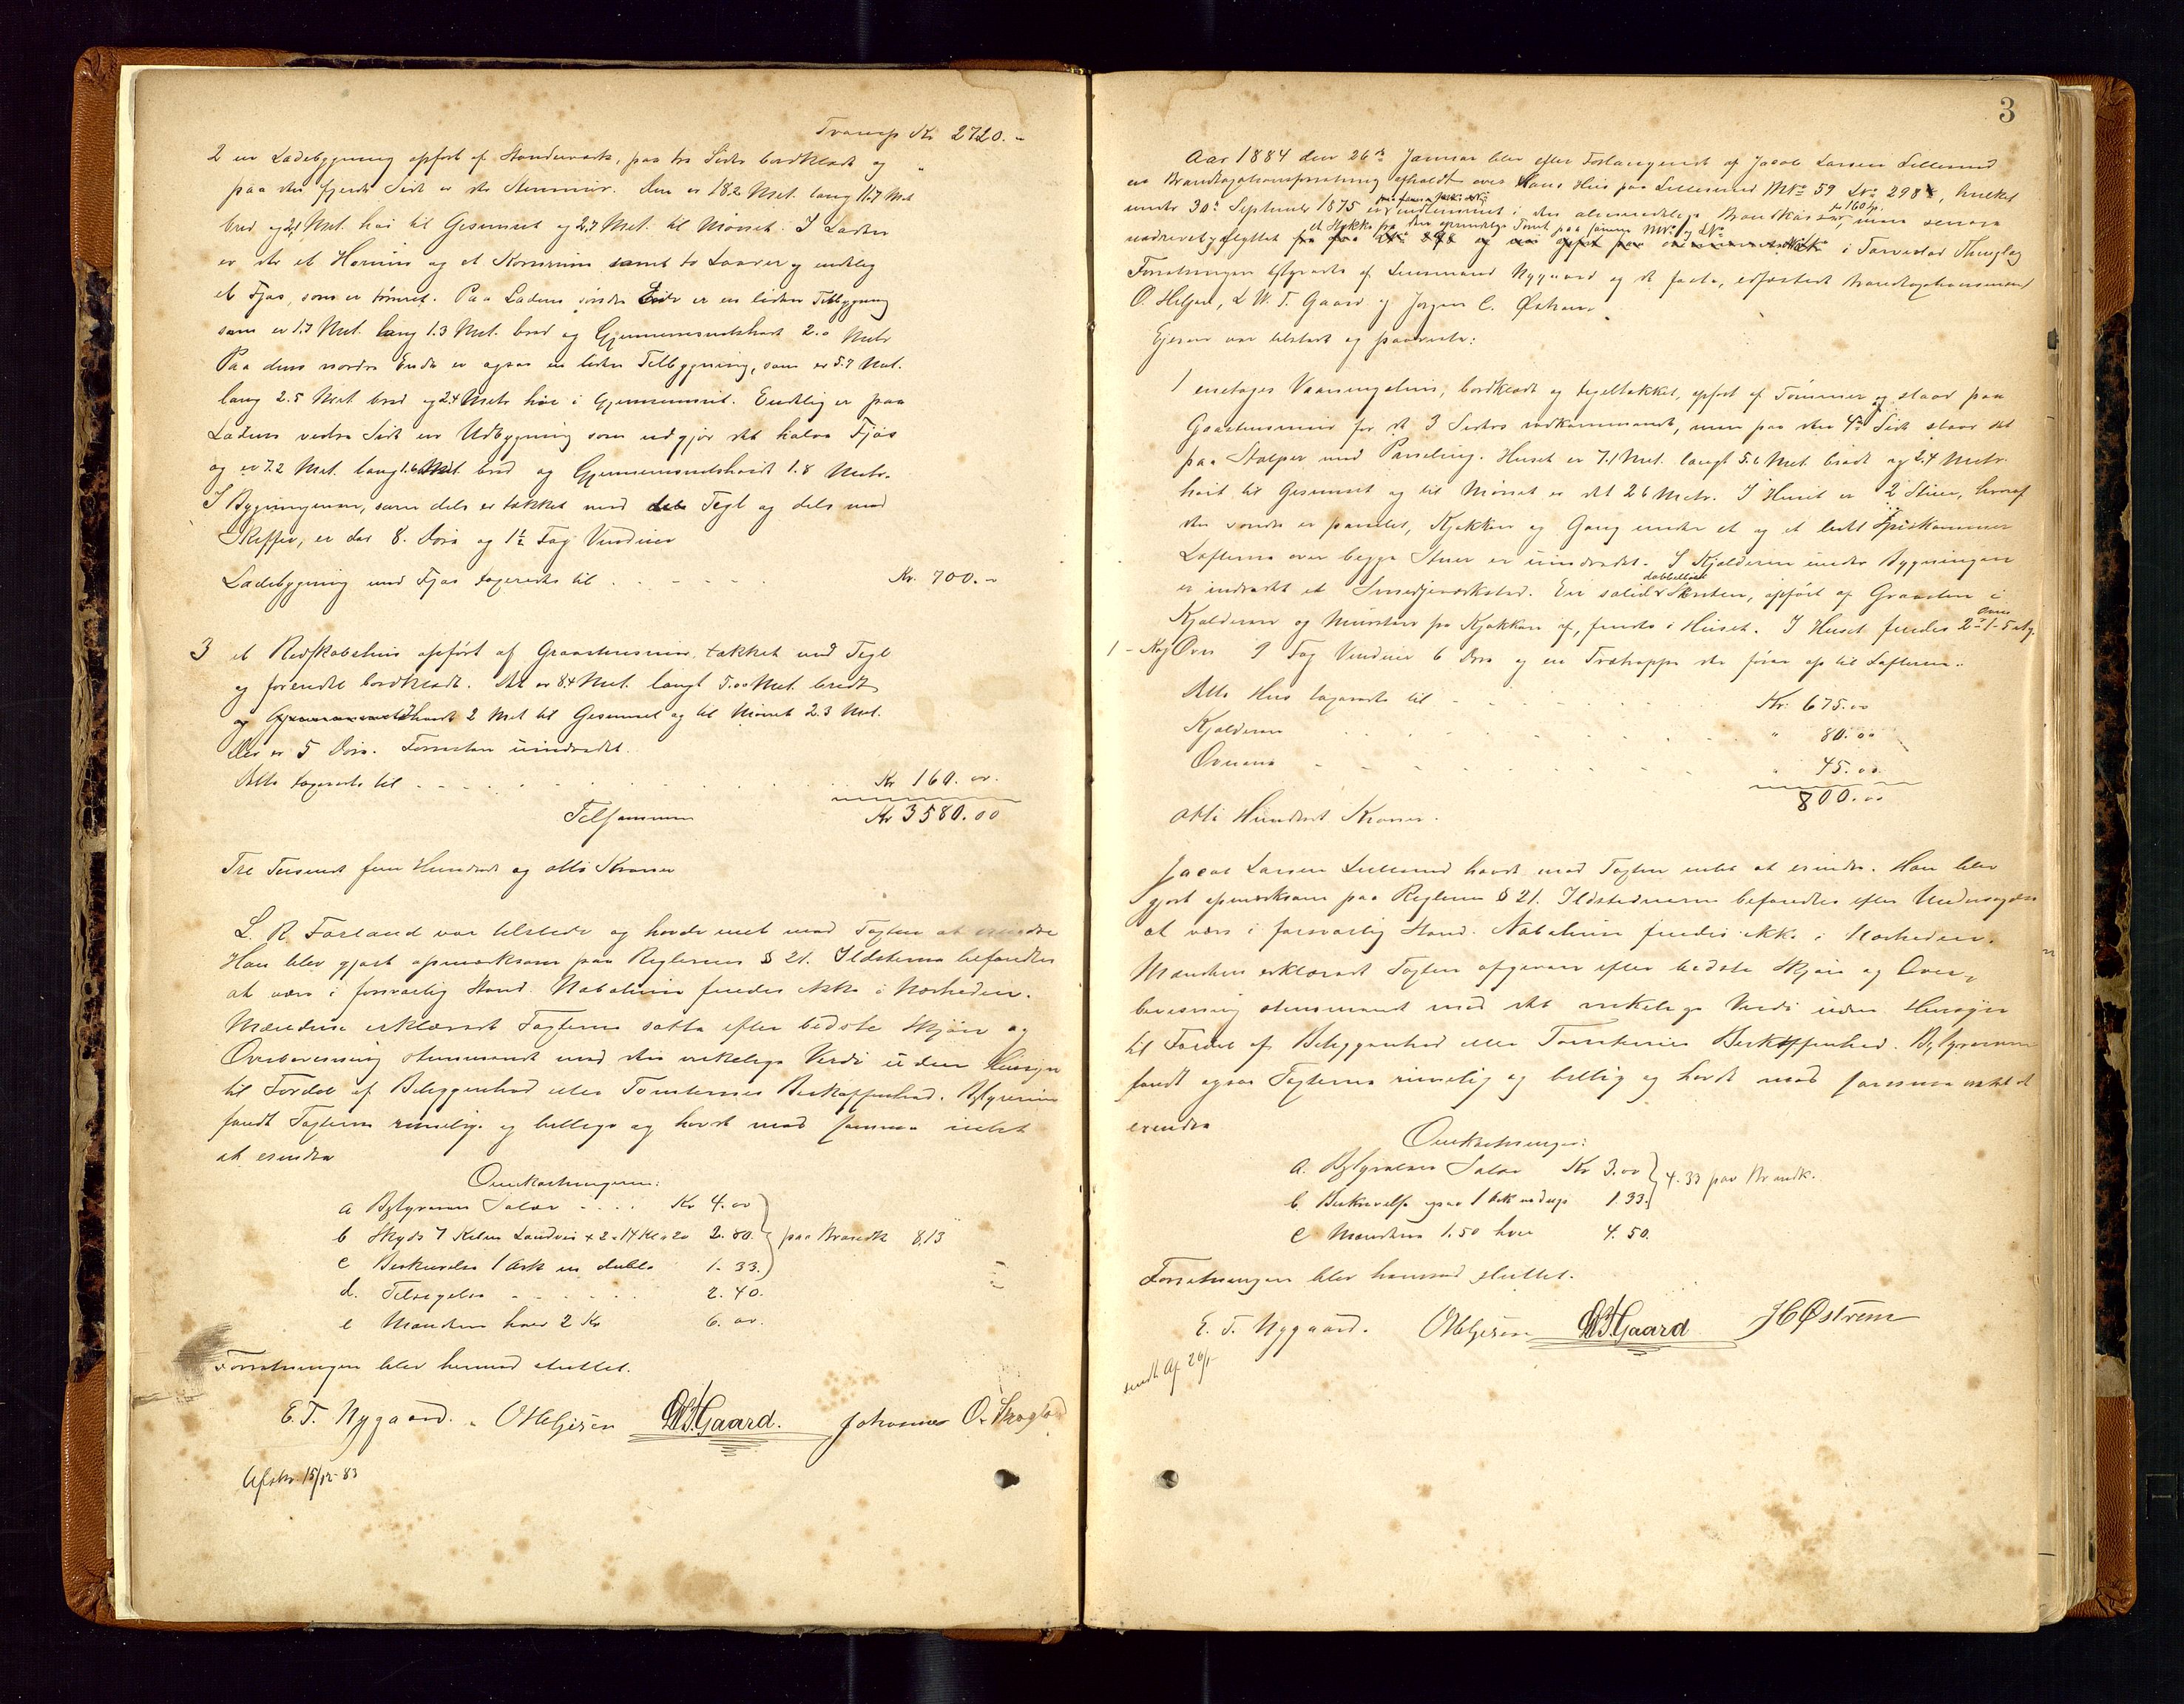 Transp Kr 2720.-
2 en Ladebygning opført af Standerværk, paa tre Sider bordklædt og
paa den fjerde Side er der Stenmuur. Den er 18.2 Met. lang 11.7 Met
bred og 2.1 Met. høi til Gesimset og 2.7 Met. til Mønnet. I Laden
er der et Hørum og et Kornrum samt to Laaver og endelig
et Fjøs, som er tømret. Paa Ladens søndre Ende er en liden Tilbygning
som er 1.7 Met. lang 1.3 Met. bred og Gjennemsnitshøide 2.0 Meter
Paa dens nordre Ende er ogsaa en liden Tilbygning, som er 5.7 Met.
lang 2.5 Met bred og 2.4 Meter høi i Gjennemsnit. Endelig er paa
Ladens vestre Side en Udbygning som udgjør det halve Fjøs
og er 7.2 Met. lang 1.6 Met. bred og Gjennemsnitshøide 1.8 Meter.
I Bygningerne, som dels er tækket med Tegl og dels med
Skiffer, er der 8. Døre og 1½ Fag Vinduer
Ladebygning med Fjøs taxeredes til . - - - - Kr. 700.-
3 et Redskabshus opført af Graastensmuur, tækket med Tegl
og forresten bordklædt. Det er 8.4 Met. langt 5.00 Met. bredt
og Gjennemsnitshøide 2 Met til Gesimset og til Mønnet 2.3 Met.
Der er 5 Døre. Forresten uindredet.
Dette taxeredes til - - - - Kr 160.00.
Tilsammen Kr 3580.00
Tre Tusende fem Hundrede og otti Kroner
L. R. Førland var tilstede og havde intet mod Taxten at erindre
Han blev gjort opmærksom paa Reglernes § 21. Ildstederne befandtes
at være i forsvarlig Stand. Nabohuse findes ikke i Nærheden.
Mændene erklærede Taxterne satte efter bedste Skjøn og
Overbevisning stemmende med den virkelige Værdi uden Hensyn
til Fordel af Beliggenhed eller Tomternes Beskaffenhed. Bestyreren
fandt Taxterne rimelige og billige og havde mod samme intet
at erindre
Omkostningerne:
a Bestyrerens Salær . . . . Kr 4.00
b Skyds 7 Kilom Landvei + 2 = 14 Kl a 20 2.80. paa Brandk 8.13
c Beskrivelse 1 Ark in duble 1. 33.
d. Tilsigelse - - - - 2. 40.
e Mændene hver 2 Kr 6. 00.
Forretningen blev hermed sluttet.
E. T. Nygaard. O Helgesen L W T Gaard. Johannes O. Skogland
Afskr. 15/12 83
3
Aar 1884 den 26de Januar blev efter Forlangende af Jacob Larsen Lillesund
en Brandtaxationsforretning afholdt over Hans Hus paa Lillesund MNo 59 LNo 298, hvilket
for 160 Spd.
under 30te September 1875 er indlemmet i den almindelige Brandkasse, men senere
et Stykke fra den oprindelige Tomt paa samme MNo og LNo
nedrevet og flyttet i Torvestad Thinglag
Forretningen bestyredes af Lensmand Nygaard og de faste, edfæstede Brandtaxationsmænd
O. Helgesen, L. W. T. Gaard og Jørgen C. Østrem.
Ejeren var tilstede og paaviste:
1 enetages Vaaningshus, bordklædt og tegltækket, opført af Tømmer og staar paa
Graastensmuur for de 3 Siders vedkommende, men paa den 4de Side staar det
paa Stolper med Panseling. Huset er 7.1 Met. langt 5.6 Met. bredt og 2.4 Meter
høit til Gesimset og til Mønnet er det 26 Meter. I Huset er 2 Stuer, hvoraf
den søndre er panelet, Kjøkken og Gang under et og et lidet Spiskammer
Lofterne over begge Stuer er uindredet. I Kjælderen under Bygningen
dobbelt
er indredet et Smedjeværksted. En solid Skorsten, opført af Graasten i
Kjælderen og Mursten fra Kjøkken af, findes i Huset. I Huset findes 2 1-5 etg.
1 - Kog Ovn 9 Fag Vinduer 6 Døre og en Trætrappe der fører op til Lofterne.
Dette Hus taxeredes til - - - - Kr. 675.00
Kjælderen - - - - " 80.00
Ovnene - - - - " 45.00
800.00
Otte Hundrede Kroner.
Jacob Larsen Lillesund havde mod Taxten intet at erindre. Han blev
gjort opmærksom paa Reglerne § 21. Ildstederne befandtes efter Undersøgelse
at være i forsvarlig Stand. Nabohuse findes ikke i Nærheden.
Mændene erklærede Taxten afgiven efter bedste Skjøn og Over-
bevisning stemmende med det virkelige Værdi uden Hensyn
til Fordel af Beliggenhed eller Tomternes Beskaffenhed. Bestyreren
fandt ogsaa Taxterne rimelig og billig og havde mod samme intet at
erindre
Omkostninger:
a. Bestyrelsens Salær Kr 3.00 4.33 paa Brandk.
b. Beskrivelse 1 Ark 1. 33.
c Mændene 1.50 hver 4. 50.
Forretningen blev hermed sluttet.
E. T. Nygaard. O Helgesen L W T Gaard J C Østrem
sendt Af 26/1